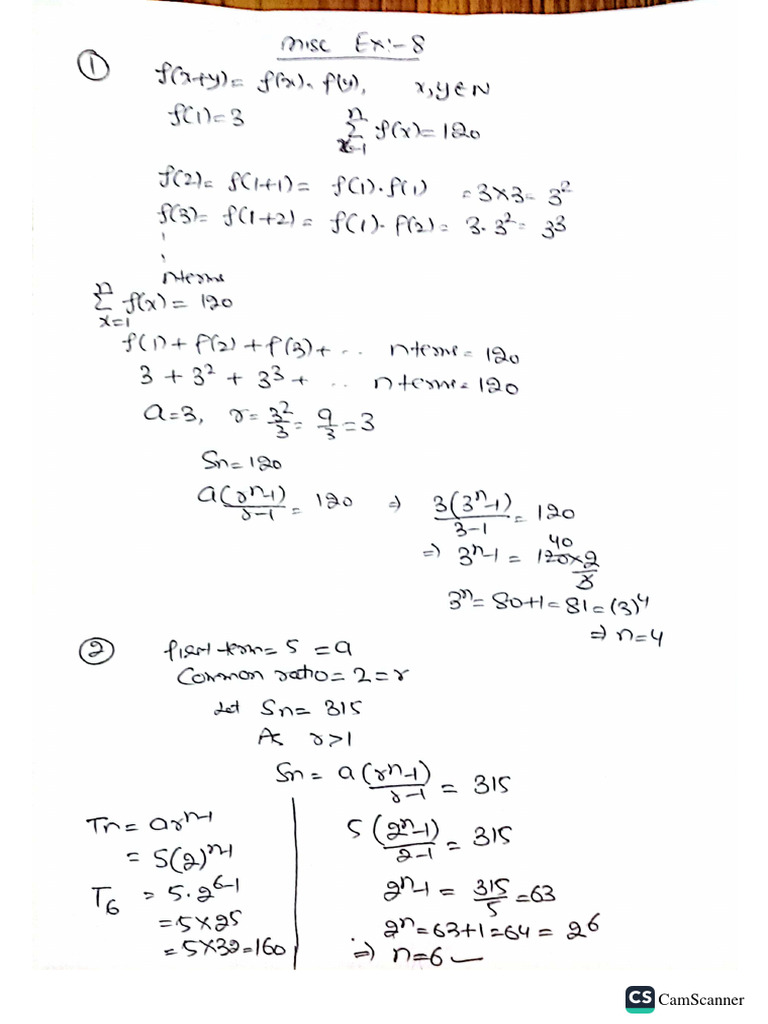 misc Ex:- 8
① f(x+y) = f(x). f(y), x,y ∈ N
f(1) = 3 n∑x=1 f(x) = 120
f(2) = f(1+1) = f(1).f(1) = 3×3 = 3²
f(3) = f(1+2) = f(1). f(2) = 3. 3² = 3³
n terms
n∑x=1 f(x) = 120
f(1) + f(2) + f(3) + .. n terms = 120
3 + 3² + 3³ + .. n terms = 120
a=3, r = 3²/3 = 9/3 = 3
Sn = 120
a(rⁿ-1)/r-1 = 120 ⇒ 3(3ⁿ-1)/3-1 = 120
⇒ 3ⁿ-1 = 120×2/3 40
3ⁿ = 80+1 = 81 = (3)⁴
⇒ n=4
② first term = 5 = a
Common ratio = 2 = r
Let Sn = 315
As r>1
Sn = a(rⁿ-1)/r-1 = 315
5(2ⁿ-1)/2-1 = 315
2ⁿ-1 = 315/5 = 63
2ⁿ = 63+1 = 64 = 2⁶
⇒ n=6
Tn = arⁿ⁻¹
= 5(2)ⁿ⁻¹
T₆ = 5.2⁶⁻¹
= 5×2⁵
= 5×32 = 160
CS CamScanner